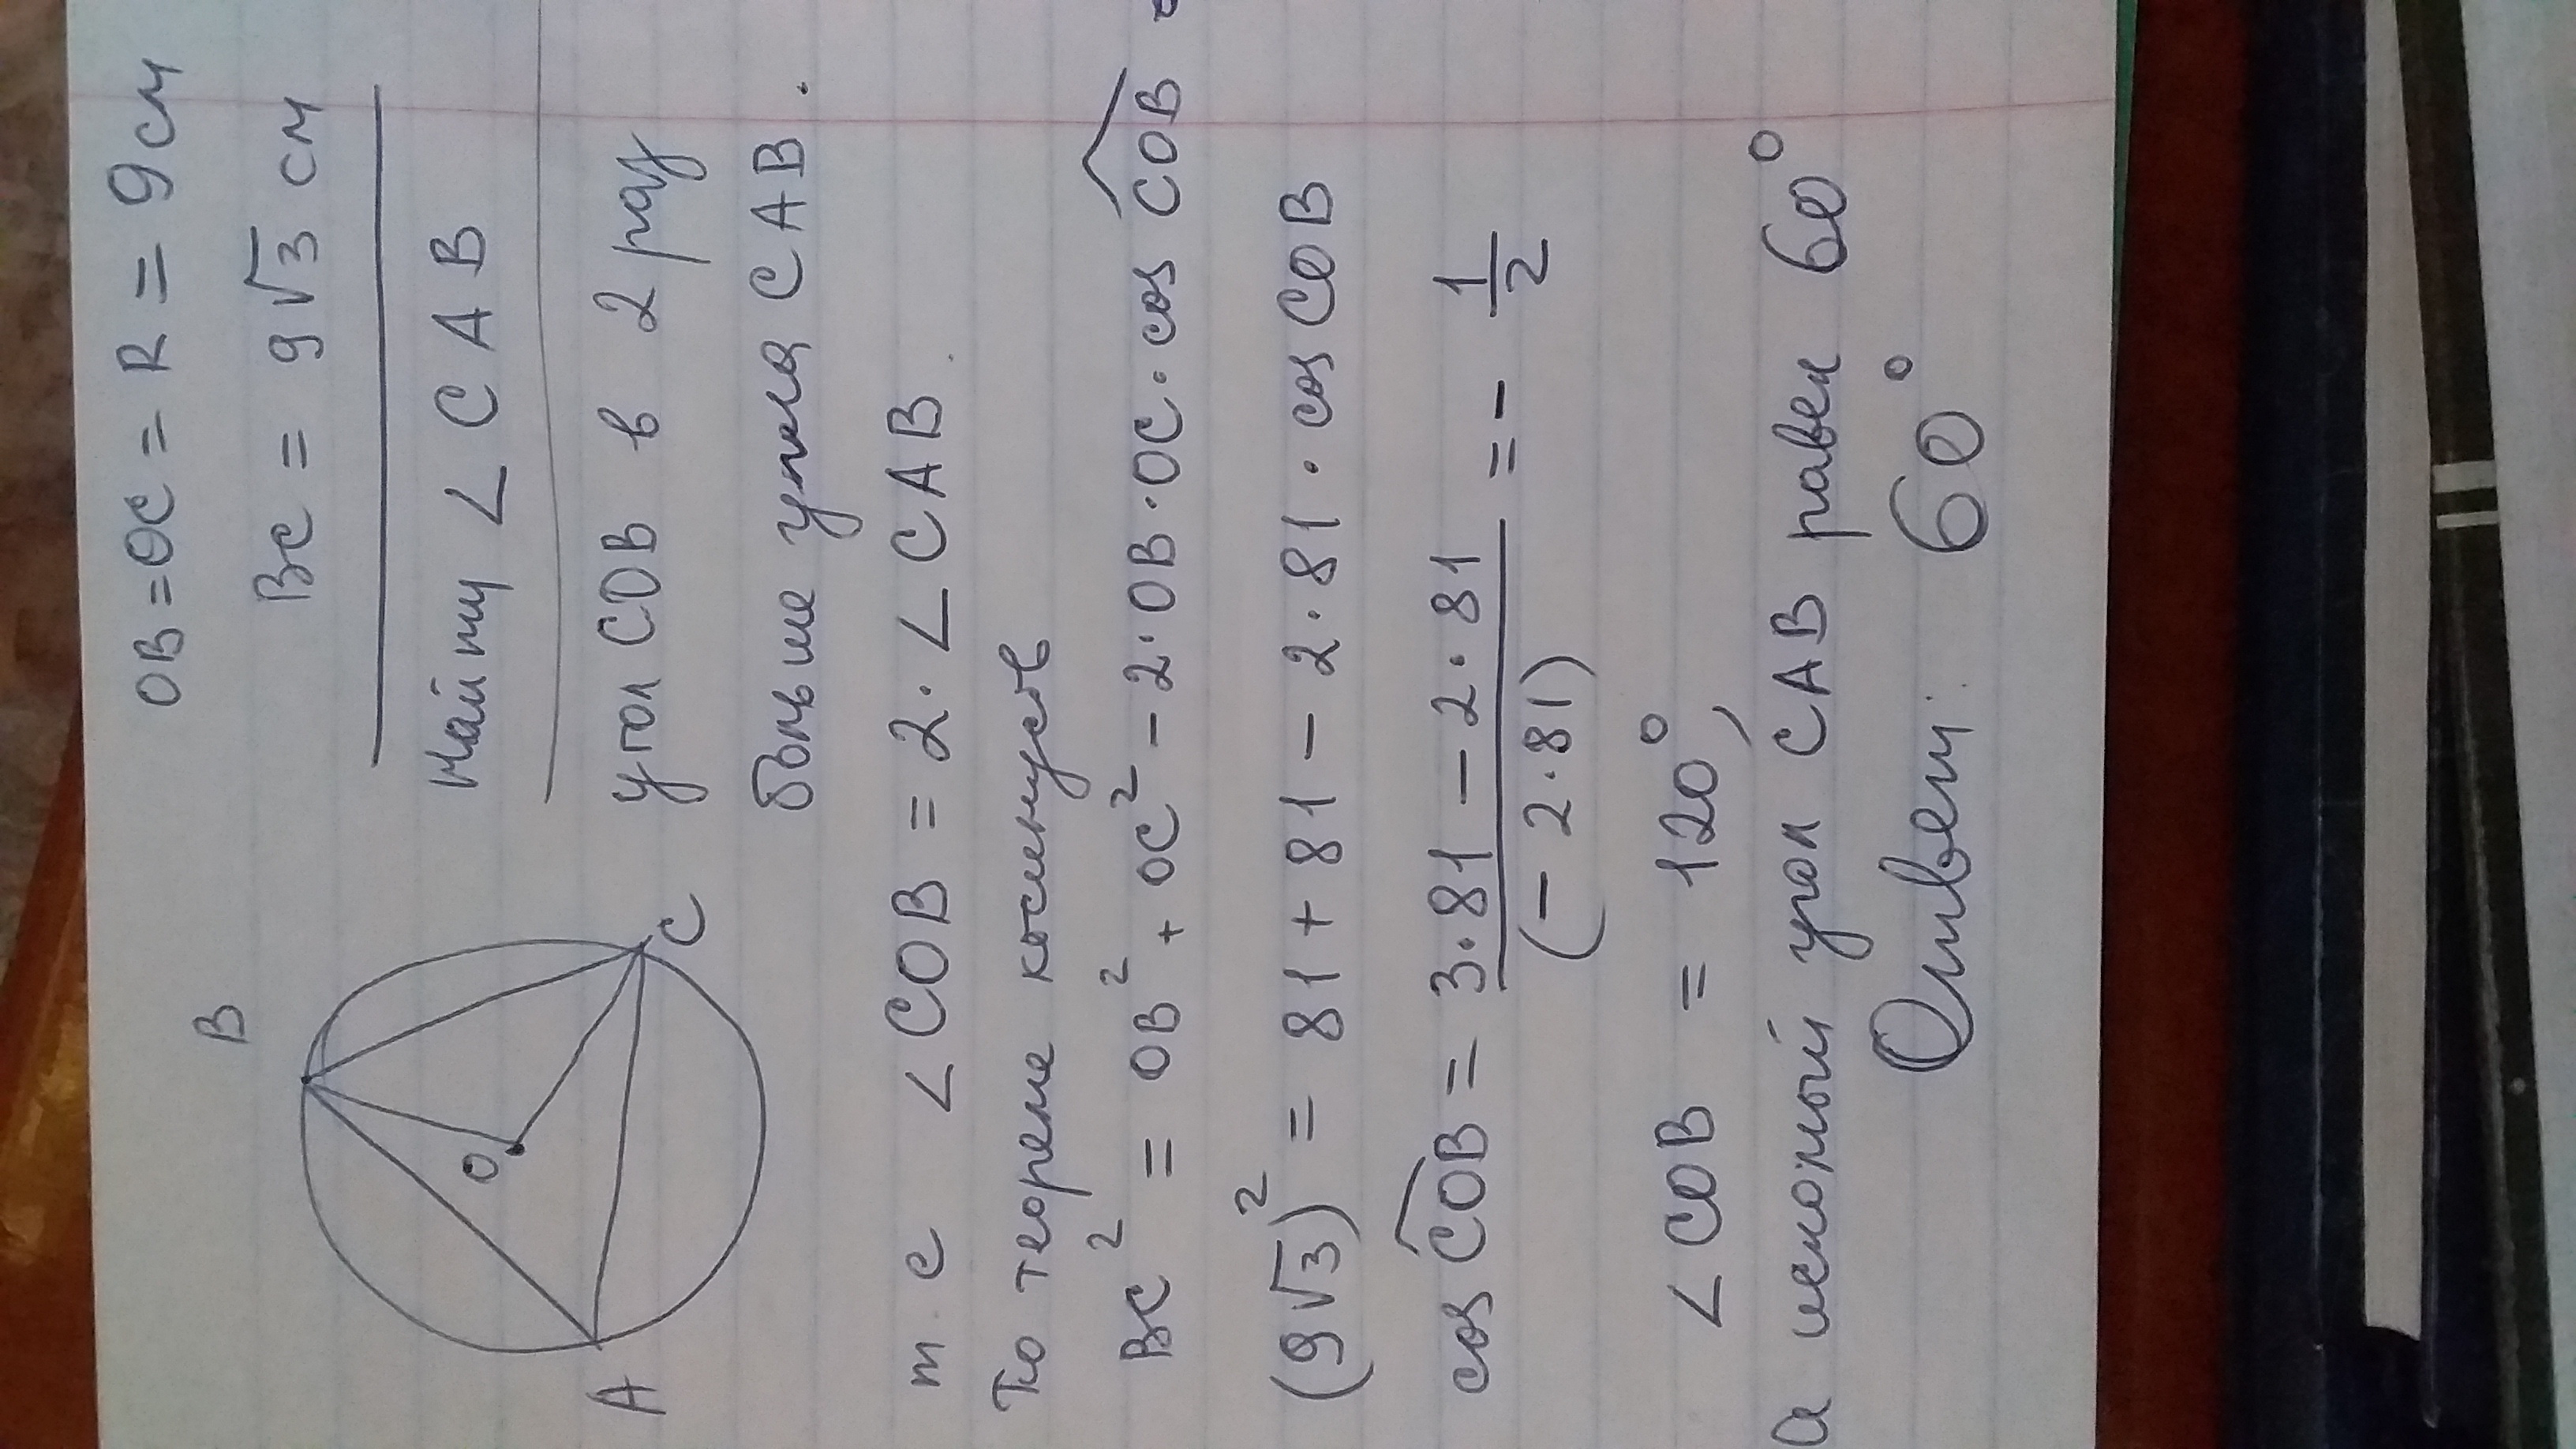 OB = OC = R = 9 см
BC = 9√3 см
Найти ∠ CAB
B
O
A
C
угол COB в 2 раз
больше угла CAB.
т. е ∠COB = 2·∠CAB.
По теореме косинусов
BC² = OB² + OC² − 2·OB·OC·cos COB =
(9√3)² = 81 + 81 − 2·81·cos COB
cos COB = (3·81 − 2·81)/(−2·81) = − 1/2
∠COB = 120°,
а искомый угол CAB равен 60°
Ответ: 60°